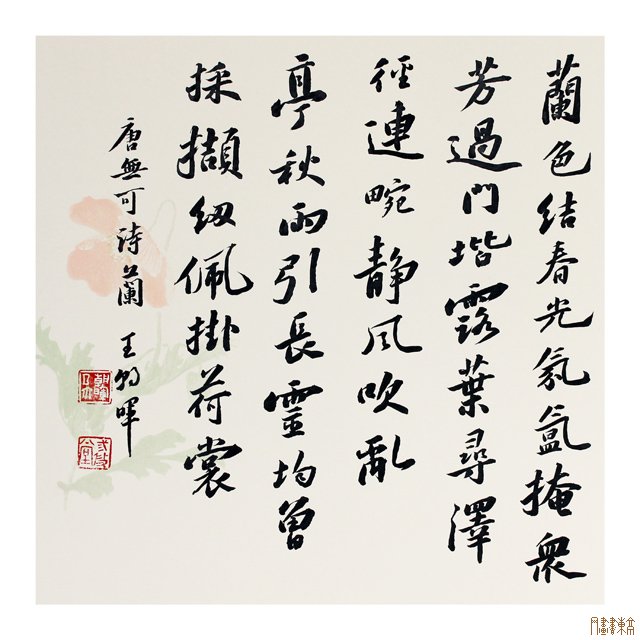 蘭色結春光氛氳掩衆
芳過門堦露葉尋澤
徑連畹静風吹亂
亭秋雨引長靈均曾
採擷紉佩掛荷裳
唐無可詩蘭 王朝暉